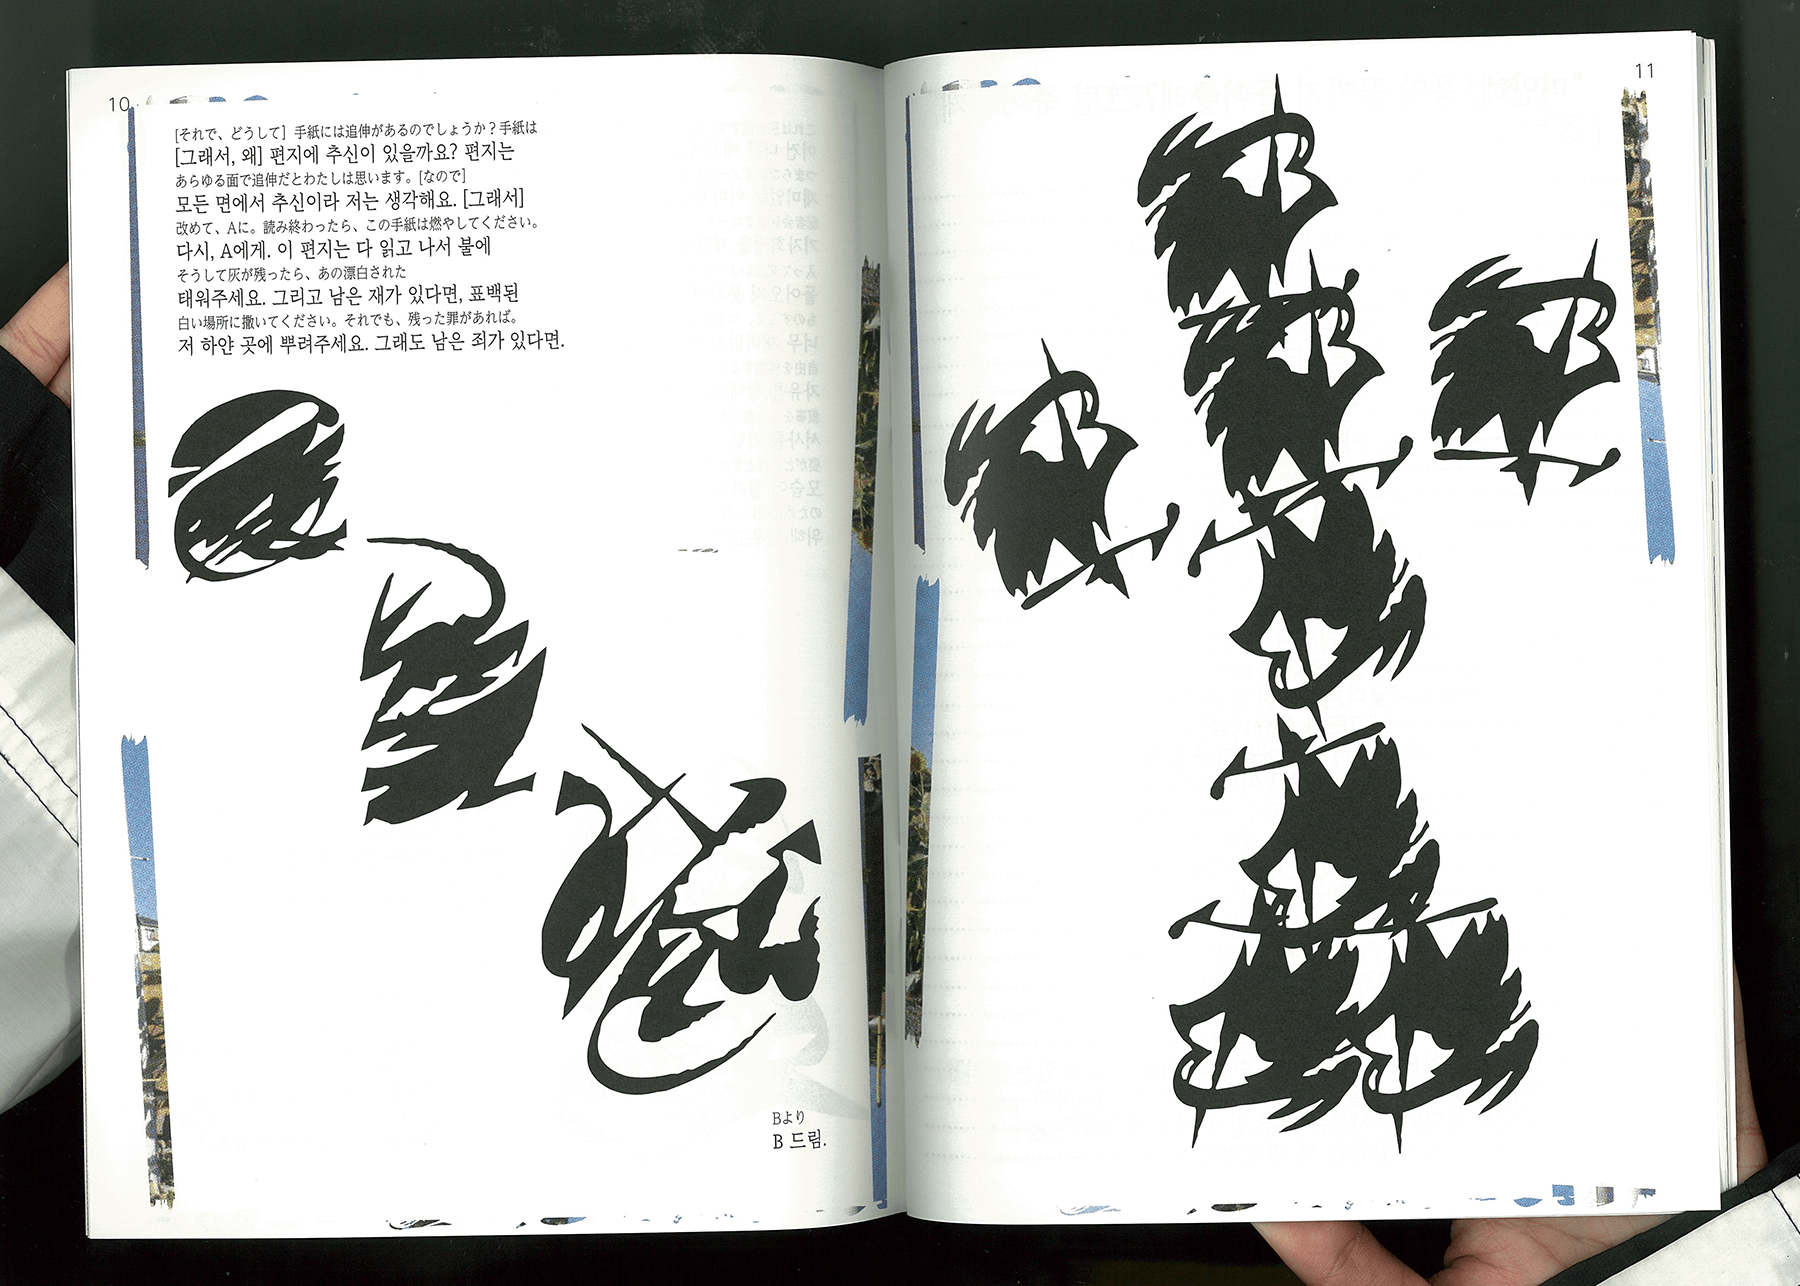 10
[それで、どうして] 手紙には追伸があるのでしょうか？手紙は
[그래서, 왜] 편지에 추신이 있을까요? 편지는
あらゆる面で追伸だとわたしは思います。[なので]
모든 면에서 추신이라 저는 생각해요. [그래서]
改めて、Aに。読み終わったら、この手紙は燃やしてください。
다시, A에게. 이 편지는 다 읽고 나서 불에
そうして灰が残ったら、あの漂白された
태워주세요. 그리고 남은 재가 있다면, 표백된
白い場所に撒いてください。それでも、残った罪があれば。
저 하얀 곳에 뿌려주세요. 그래도 남은 죄가 있다면.
Bより
B 드림.
11